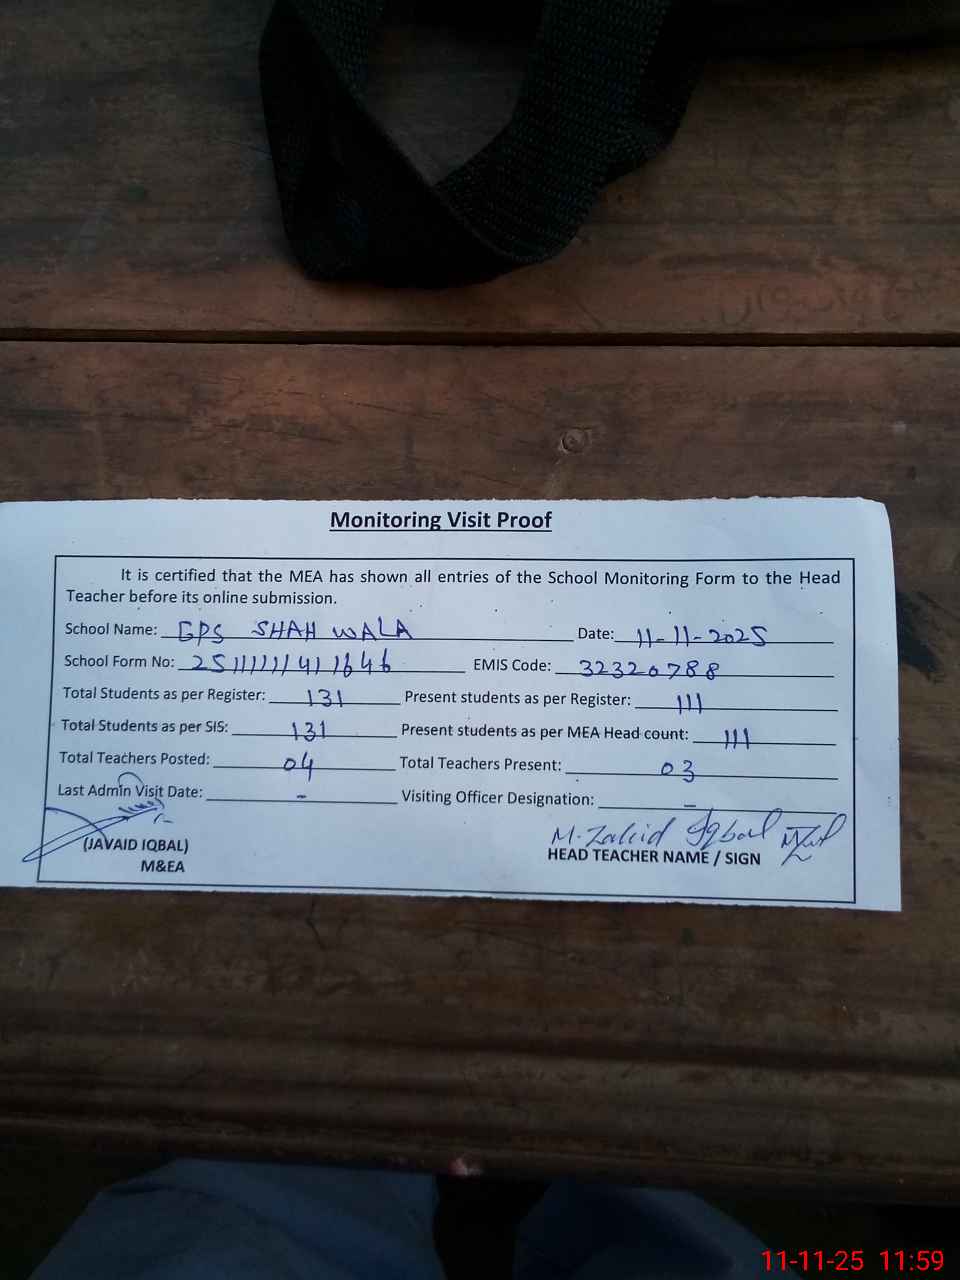 Monitoring Visit Proof
It is certified that the MEA has shown all entries of the School Monitoring Form to the Head
Teacher before its online submission.
School Name: GPS SHAH WALA Date: 11-11-2025
School Form No: 25111111411646 EMIS Code: 32320788
Total Students as per Register: 131 Present students as per Register: 111
Total Students as per SIS: 131 Present students as per MEA Head count: 111
Total Teachers Posted: 04 Total Teachers Present: 03
Last Admin Visit Date: - Visiting Officer Designation: -
M. Zahid Iqbal
(JAVAID IQBAL) HEAD TEACHER NAME / SIGN
M&EA
11-11-25 11:59